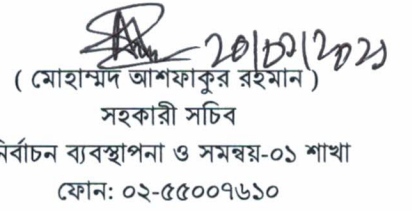 ( মোহাম্মদ আশফাকুর রহমান )
সহকারী সচিব
নির্বাচন ব্যবস্থাপনা ও সমন্বয়-০১ শাখা
ফোন: ০২-৫৫০০৭৬১০